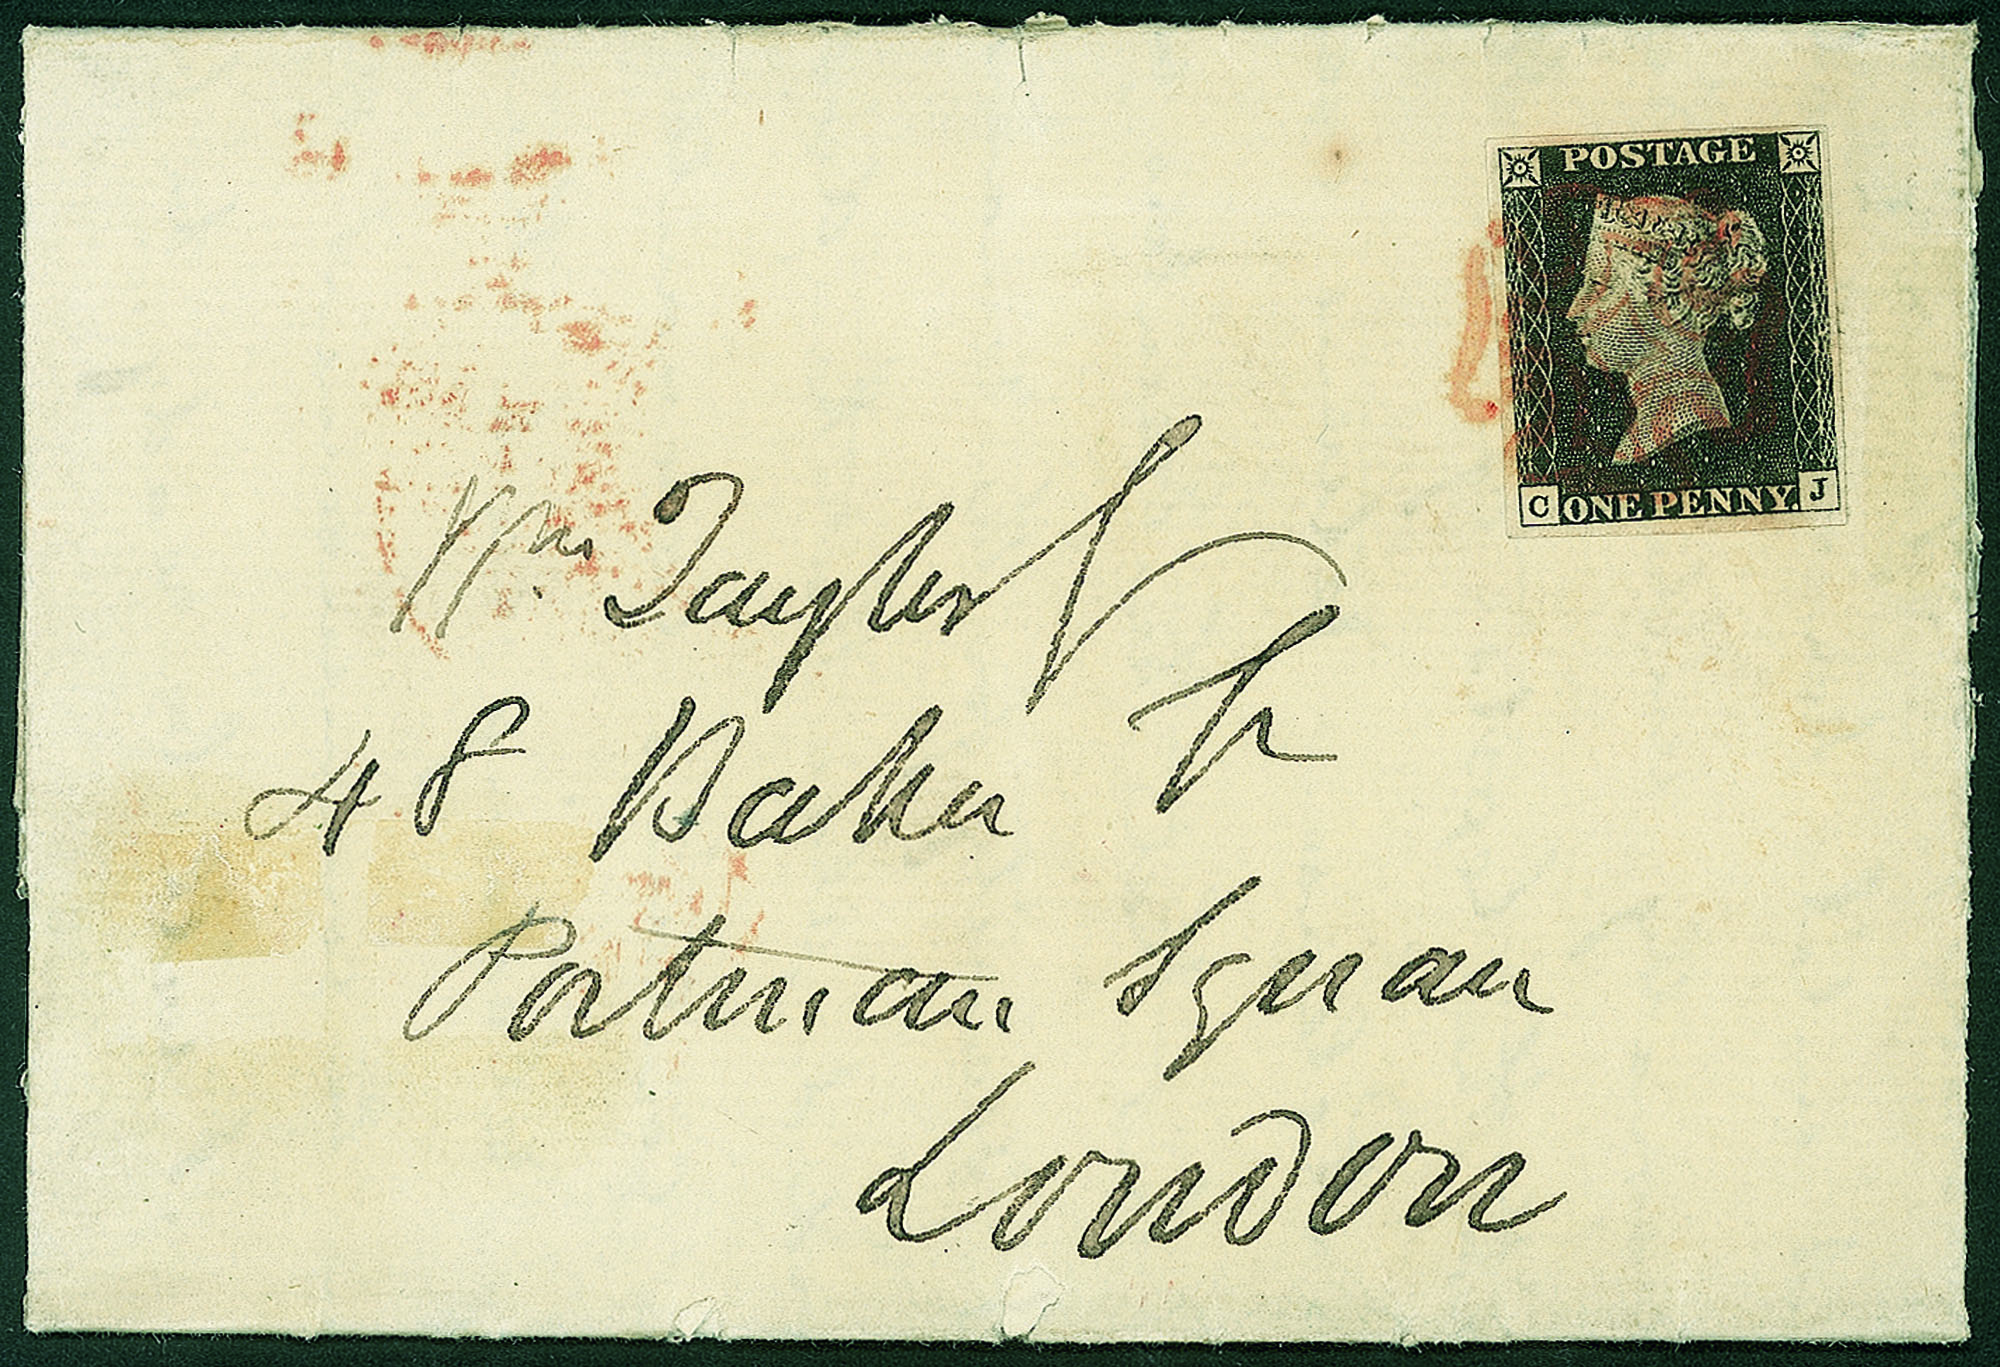 POSTAGE
C ONE PENNY. J
Wm. Taylor
48 Baker St
Portman Square
London